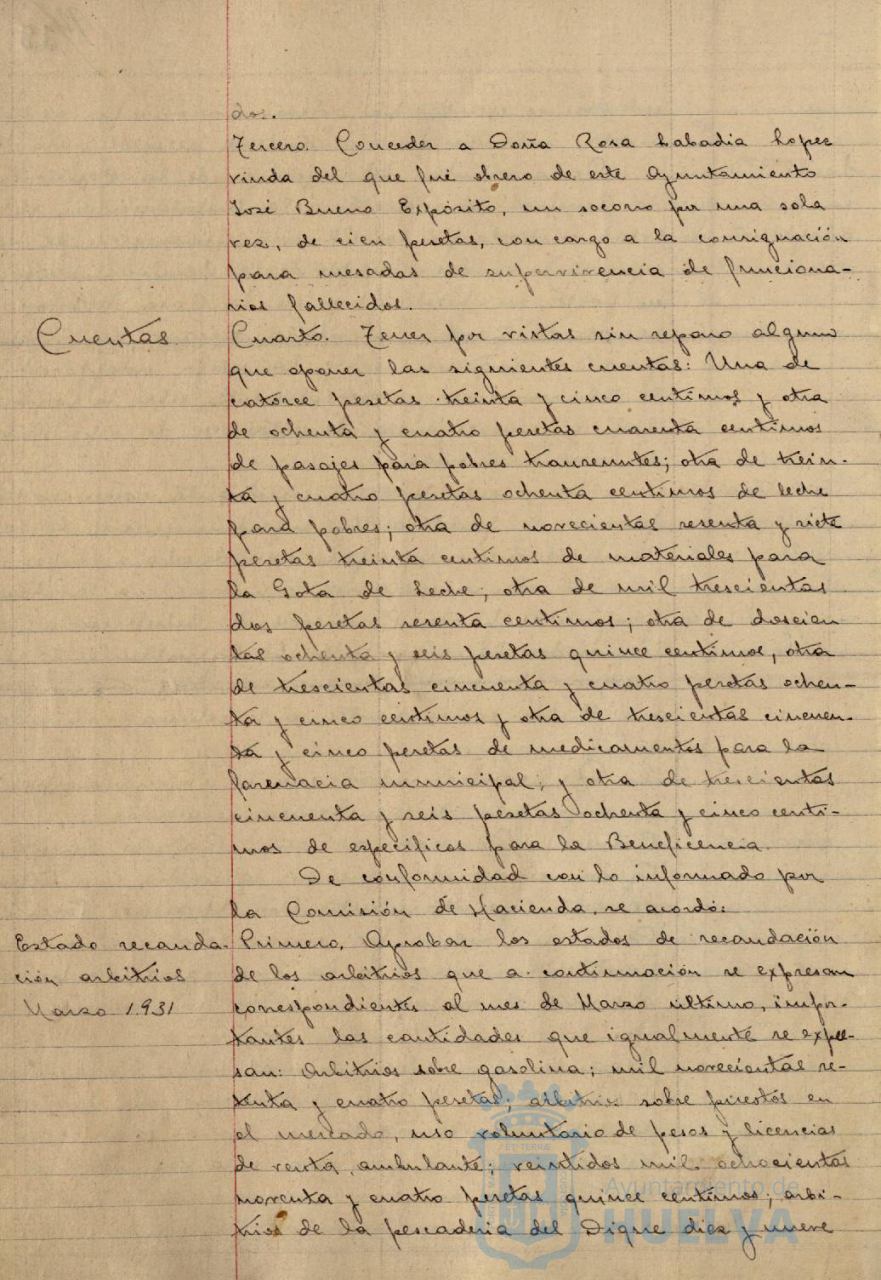 dos.
Tercero. Conceder a Doña Rosa Labadia Lopez
viuda del que fué obrero de este Ayuntamiento
José Bueno Expósito, un socorro por una sola
vez, de cien pesetas, con cargo a la consignación
para mesadas de supervivencia de funciona-
rios fallecidos.
Cuentas
Cuarto. Tener por vistas sin reparo alguno
que oponer las siguientes cuentas: Una de
catorce pesetas treinta y cinco centimos y otra
de ochenta y cuatro pesetas cuarenta centimos
de pasajes para pobres transeuntes; otra de trein-
ta y cuatro pesetas ochenta centimos de leche
para pobres; otra de novecientas sesenta y siete
pesetas treinta centimos de materiales para
la Gota de Leche; otra de mil trescientas
dos pesetas sesenta centimos; otra de doscien
tas ochenta y seis pesetas quince centimos, otra
de trescientas cincuenta y cuatro pesetas ochen-
ta y cinco centimos y otra de trescientas cincuen-
ta y cinco pesetas de medicamentos para la
farmacia municipal; y otra de trescientas
cincuenta y seis pesetas ochenta y cinco centi-
mos de especificos para la Beneficencia.
De conformidad con lo informado por
la Comisión de Hacienda, se acordó:
Estado recauda-
ción arbitrios
Marzo 1.931
Primero. Aprobar los estados de recaudación
de los arbitrios que a continuación se expresan
correspondientes al mes de Marzo ultimo, impor-
tantes las cantidades que igualmente se expre-
san: Arbitrios sobre gasolina; mil novecientas se-
tenta y cuatro pesetas; arbitrio sobre puestos en
el mercado, uso voluntario de pesos y licencias
de venta ambulante; veintidos mil ochocientas
noventa y cuatro pesetas quince centimos; arbi-
trios de la pescaderia del Dique diez y nueve
Ayuntamiento de
HUELVA